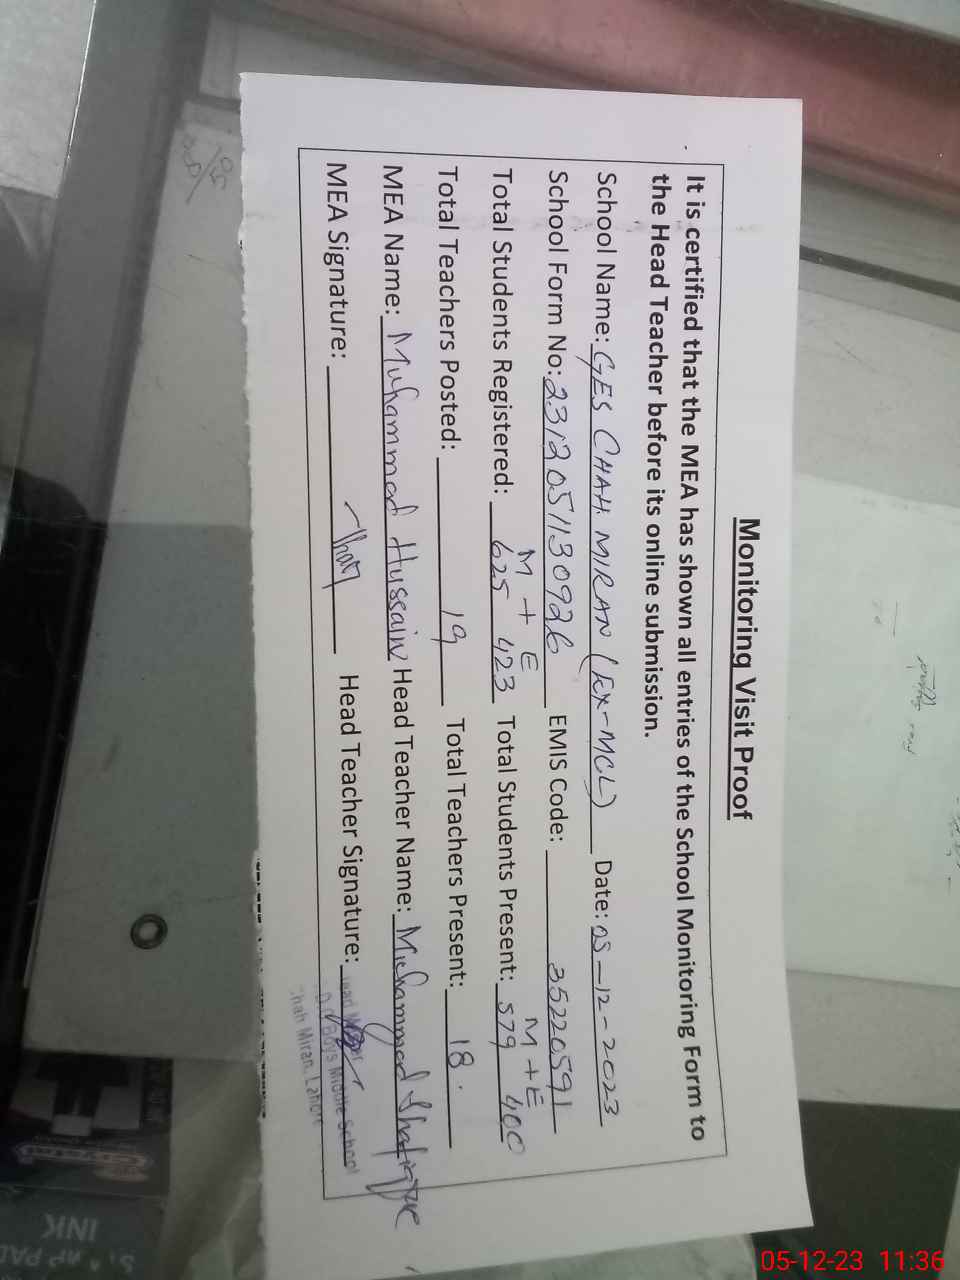 Monitoring Visit Proof
It is certified that the MEA has shown all entries of the School Monitoring Form to
the Head Teacher before its online submission.
School Name: GES CHAH MIRAN (EX-MCL) Date: 05-12-2023
School Form No: 231205113 0926 EMIS Code: 35220591
M + E M + E
Total Students Registered: 625 423 Total Students Present: 579 400
Total Teachers Posted: 19 Total Teachers Present: 18.
MEA Name: Muhammad Hussain Head Teacher Name: Muhammad Shafique
MEA Signature: Head Teacher Signature:
Boys Middle School
Chah Miran, Lahore
INK
05-12-23 11:36